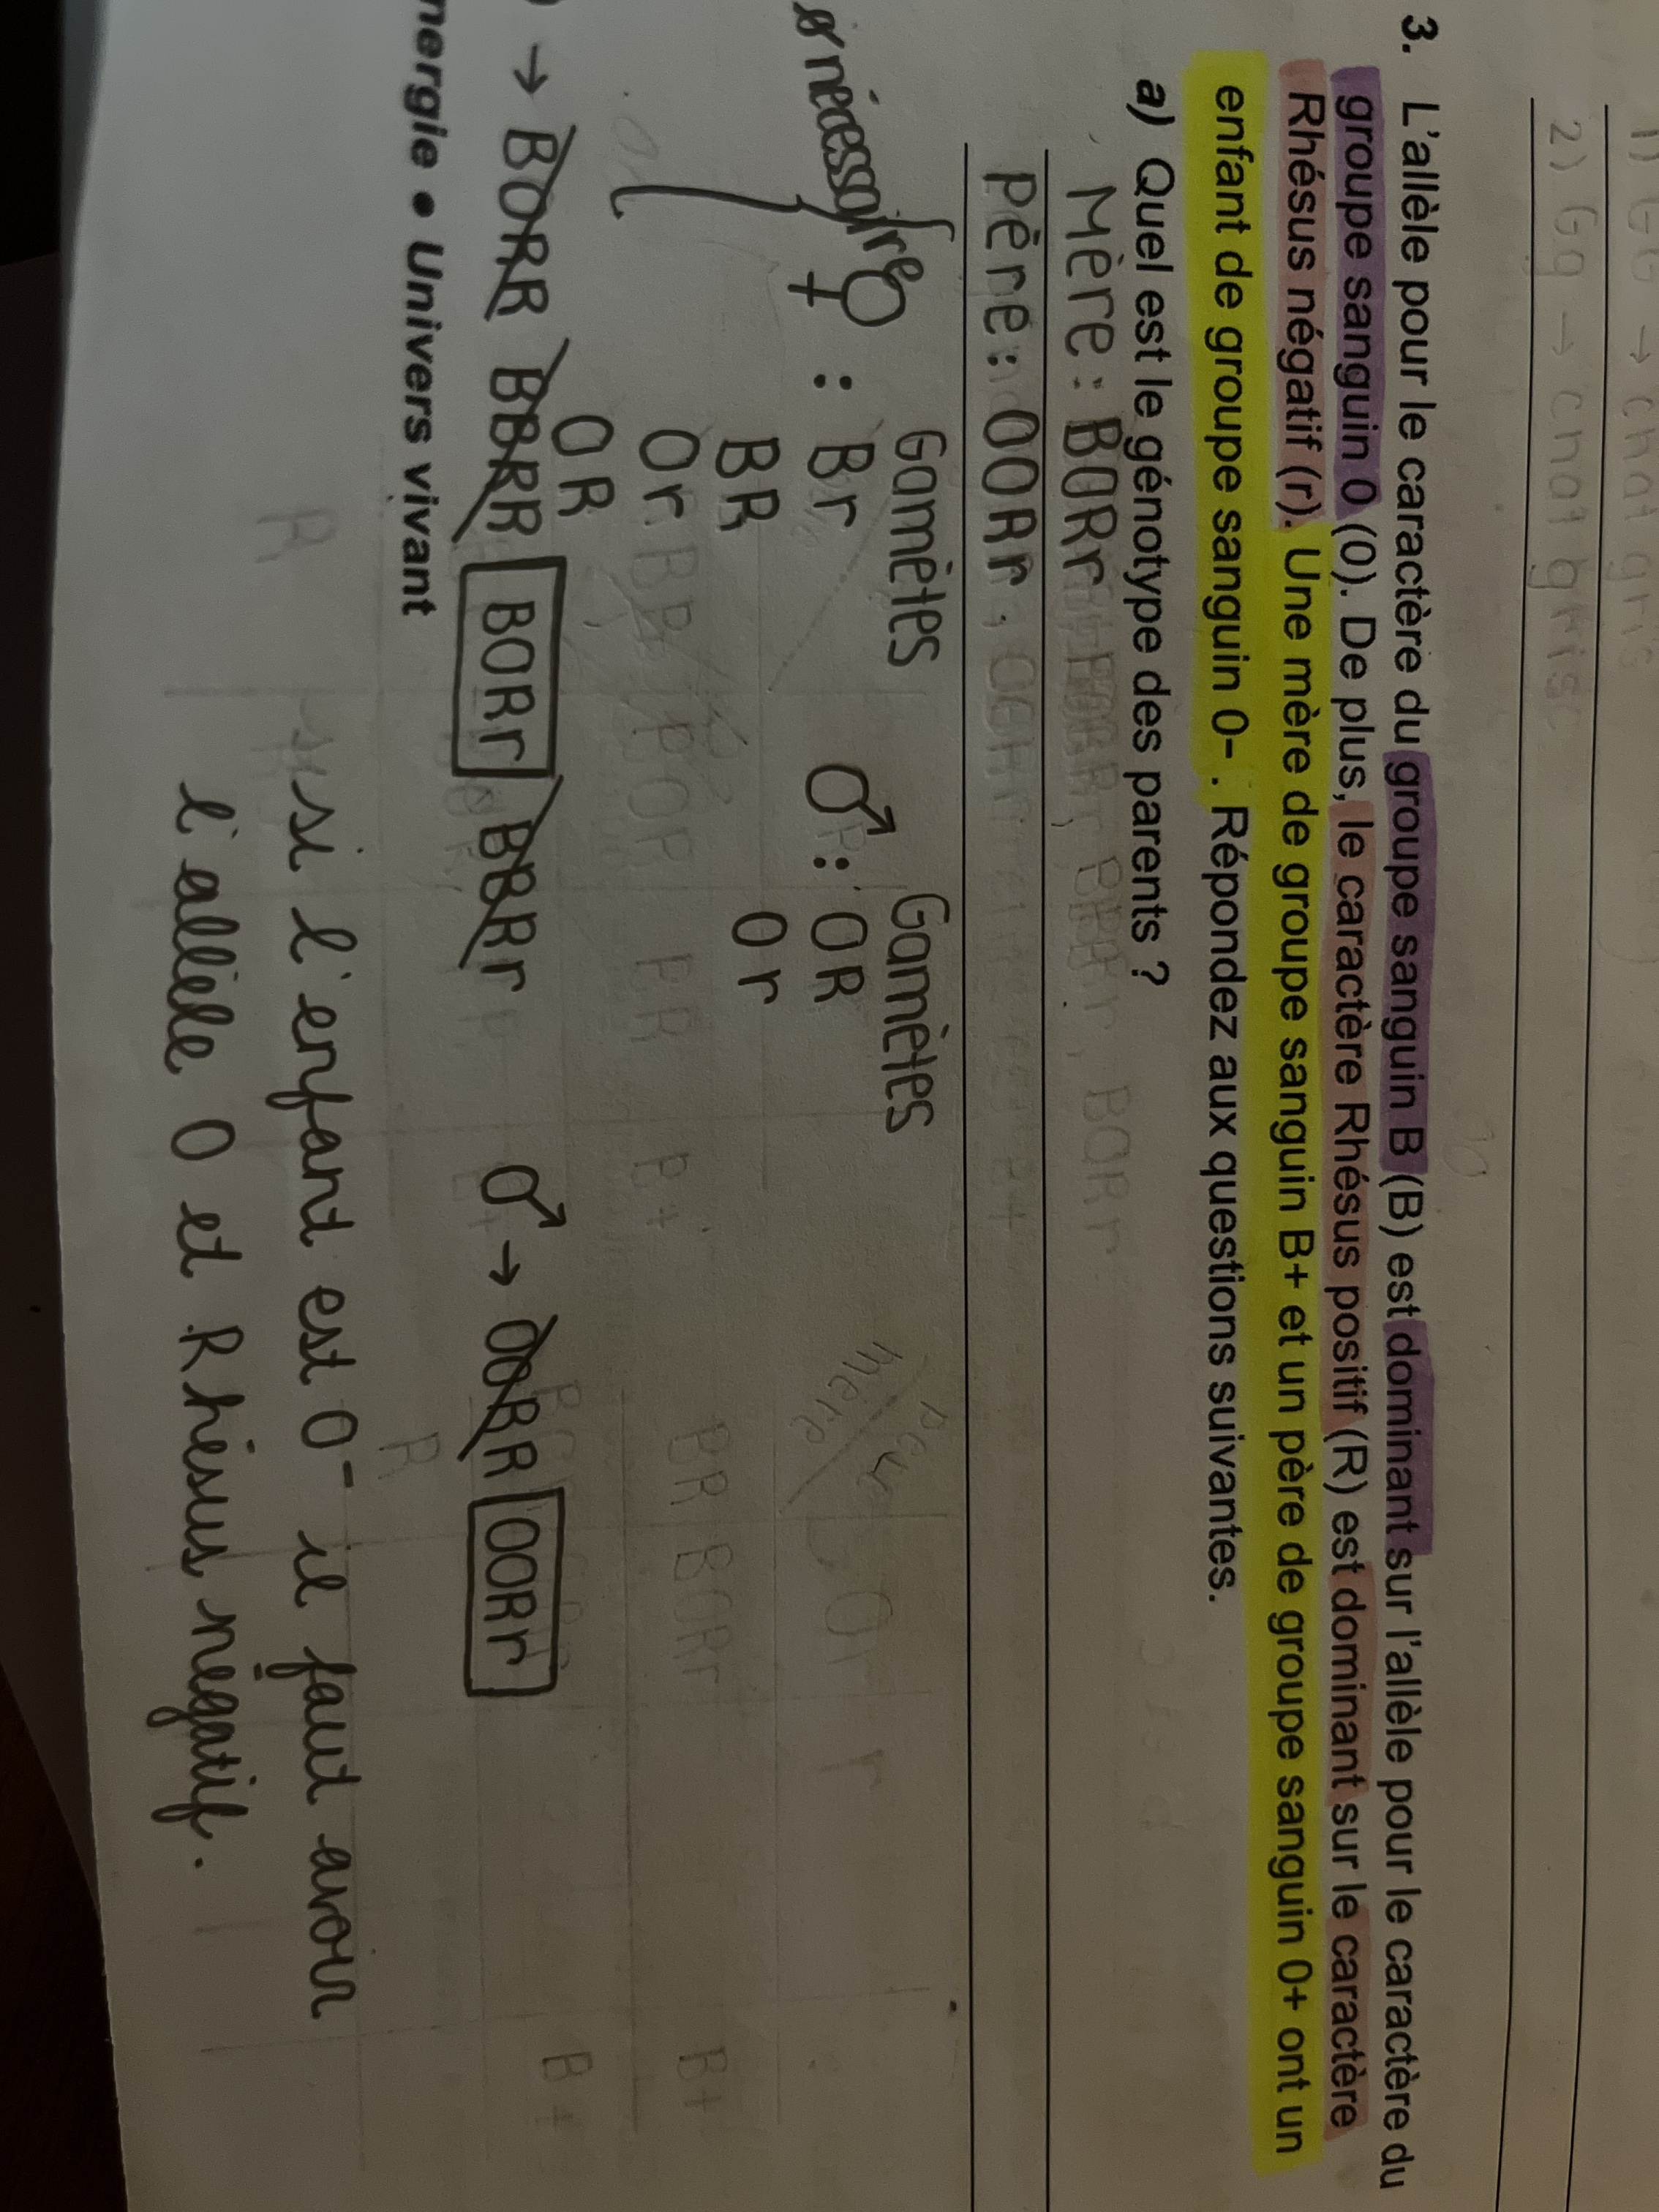 2) Gg → chat gris
3. L'allèle pour le caractère du groupe sanguin B (B) est dominant sur l'allèle pour le caractère du
groupe sanguin 0 (0). De plus, le caractère Rhésus positif (R) est dominant sur le caractère
Rhésus négatif (r). Une mère de groupe sanguin B+ et un père de groupe sanguin 0+ ont un
enfant de groupe sanguin 0- . Répondez aux questions suivantes.
a) Quel est le génotype des parents ?
Mère : BORr
père : OORr
Gamètes Gamètes
nécessaire ♀ : Br ♂ : OR
BR Or
Or
OR
→ BORR BBRR BORr BBRr ♂ → OORR OORr
nergie • Univers vivant
si l'enfant est O⁻ il faut avoir
l'allèle O et Rhésus négatif.